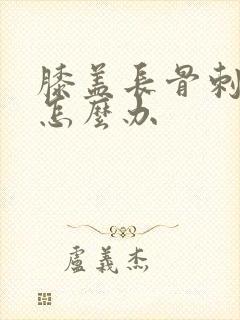 膝盖長骨刺
怎麼办
盧義杰